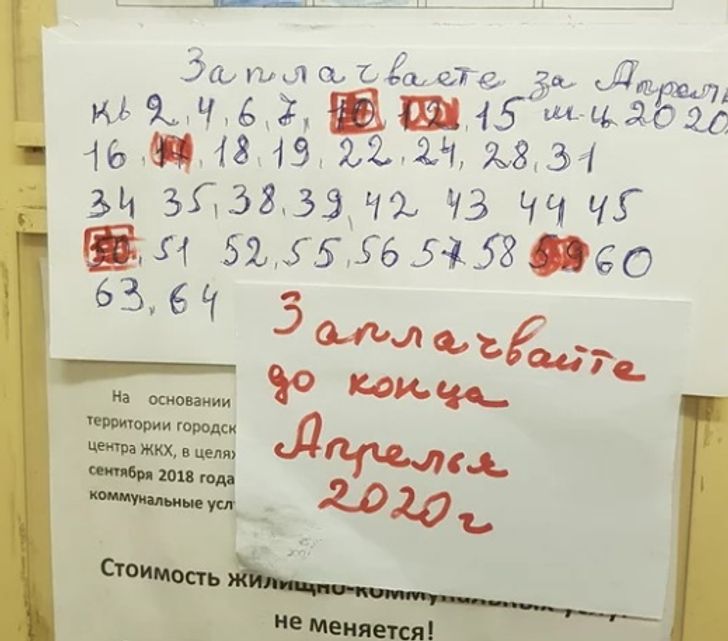 Заплачваете за Апрель
кв 2, 4, 6, 7, 10, 12, 15 м-ц 2020
16, 17, 18, 19, 22, 24, 28, 31
34 35, 38, 39, 42 43 44 45
50, 51 52, 55, 56 57 58 59 60
63, 64
Заплачвайте
до конца
Апрелья
2020 г
На основании
территории городск
центра ЖКХ, в целях
сентября 2018 года
коммунальные усл
Стоимость жилищно-коммунальных услуг
не меняется!